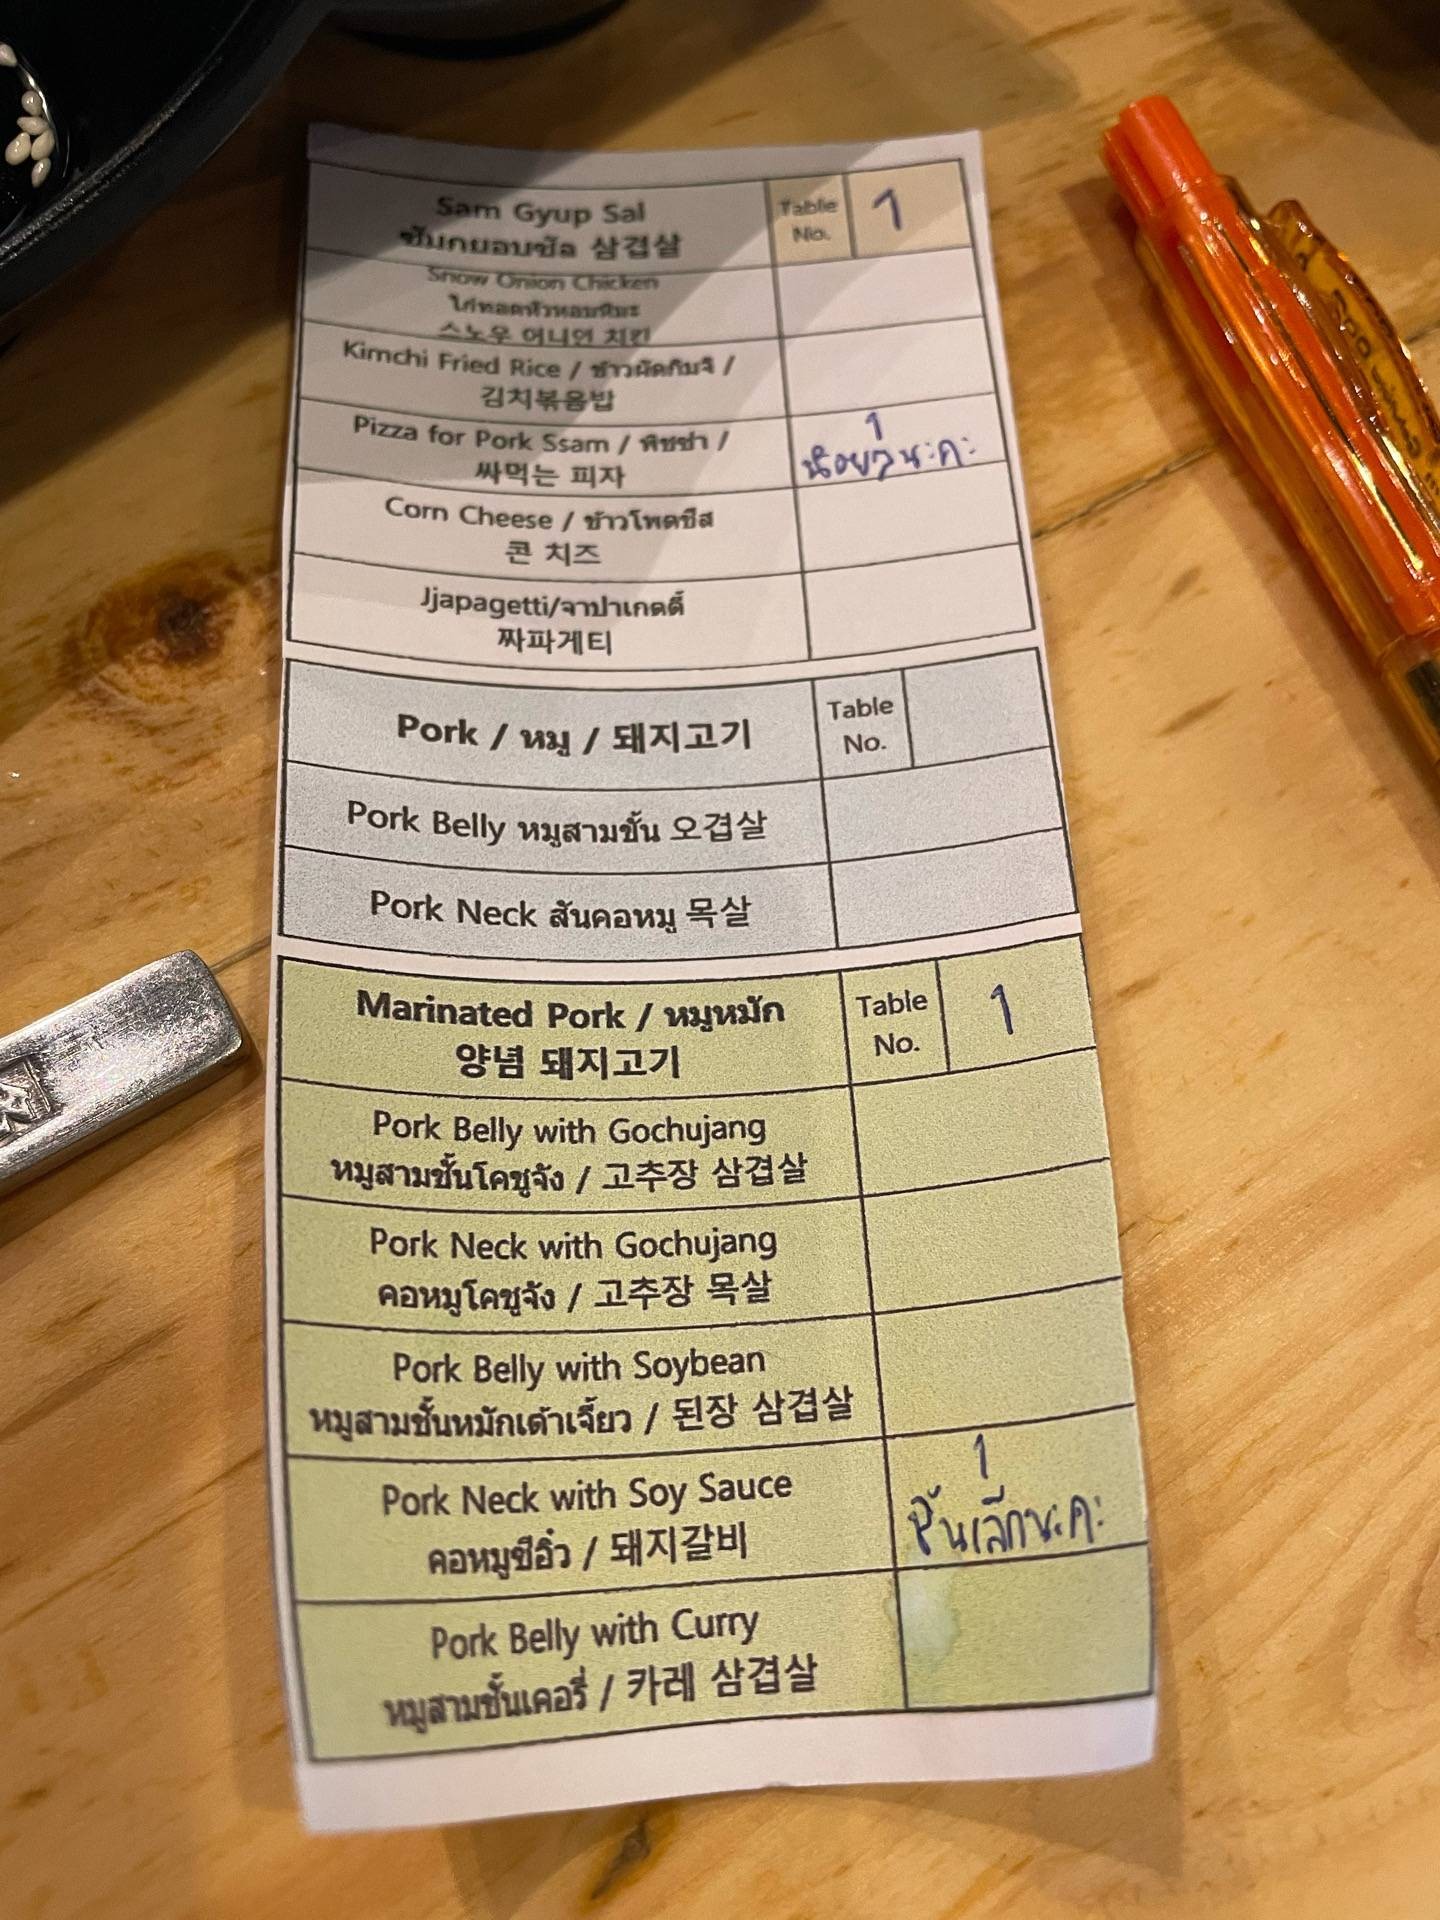 Sam Gyup Sal
ซัมกยอบซัล 삼겹살
Table No.
1
Snow Onion Chicken
ไก่ทอดหัวหอมหิมะ
스노우 어니언 치킨
Kimchi Fried Rice / ข้าวผัดกิมจิ /
김치볶음밥
Pizza for Pork Ssam / พิซซ่า /
싸먹는 피자
1
น้อยๆนะคะ
Corn Cheese / ข้าวโพดชีส
콘 치즈
Jjapagetti/จาปาเกตตี้
짜파게티
Pork / หมู / 돼지고기
Table No.
Pork Belly หมูสามชั้น 오겹살
Pork Neck สันคอหมู 목살
Marinated Pork / หมูหมัก
양념 돼지고기
Table No.
1
Pork Belly with Gochujang
หมูสามชั้นโคชูจัง / 고추장 삼겹살
Pork Neck with Gochujang
คอหมูโคชูจัง / 고추장 목살
Pork Belly with Soybean
หมูสามชั้นหมักเต้าเจี้ยว / 된장 삼겹살
Pork Neck with Soy Sauce
คอหมูซีอิ๋ว / 돼지갈비
1
ชิ้นเล็กนะคะ
Pork Belly with Curry
หมูสามชั้นเคอรี่ / 카레 삼겹살